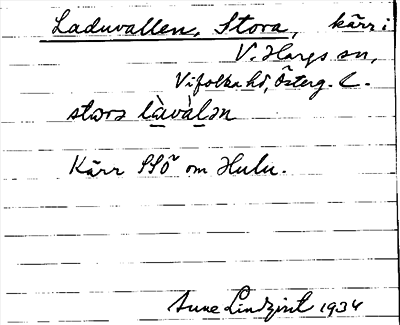 Laduvallen, Stora, kärr i
V. Hargs sn,
Vifolka hd, Österg. L.
stora làvàlən
Kärr SSÖ om Hulu.
Sune Lindqvist 1934